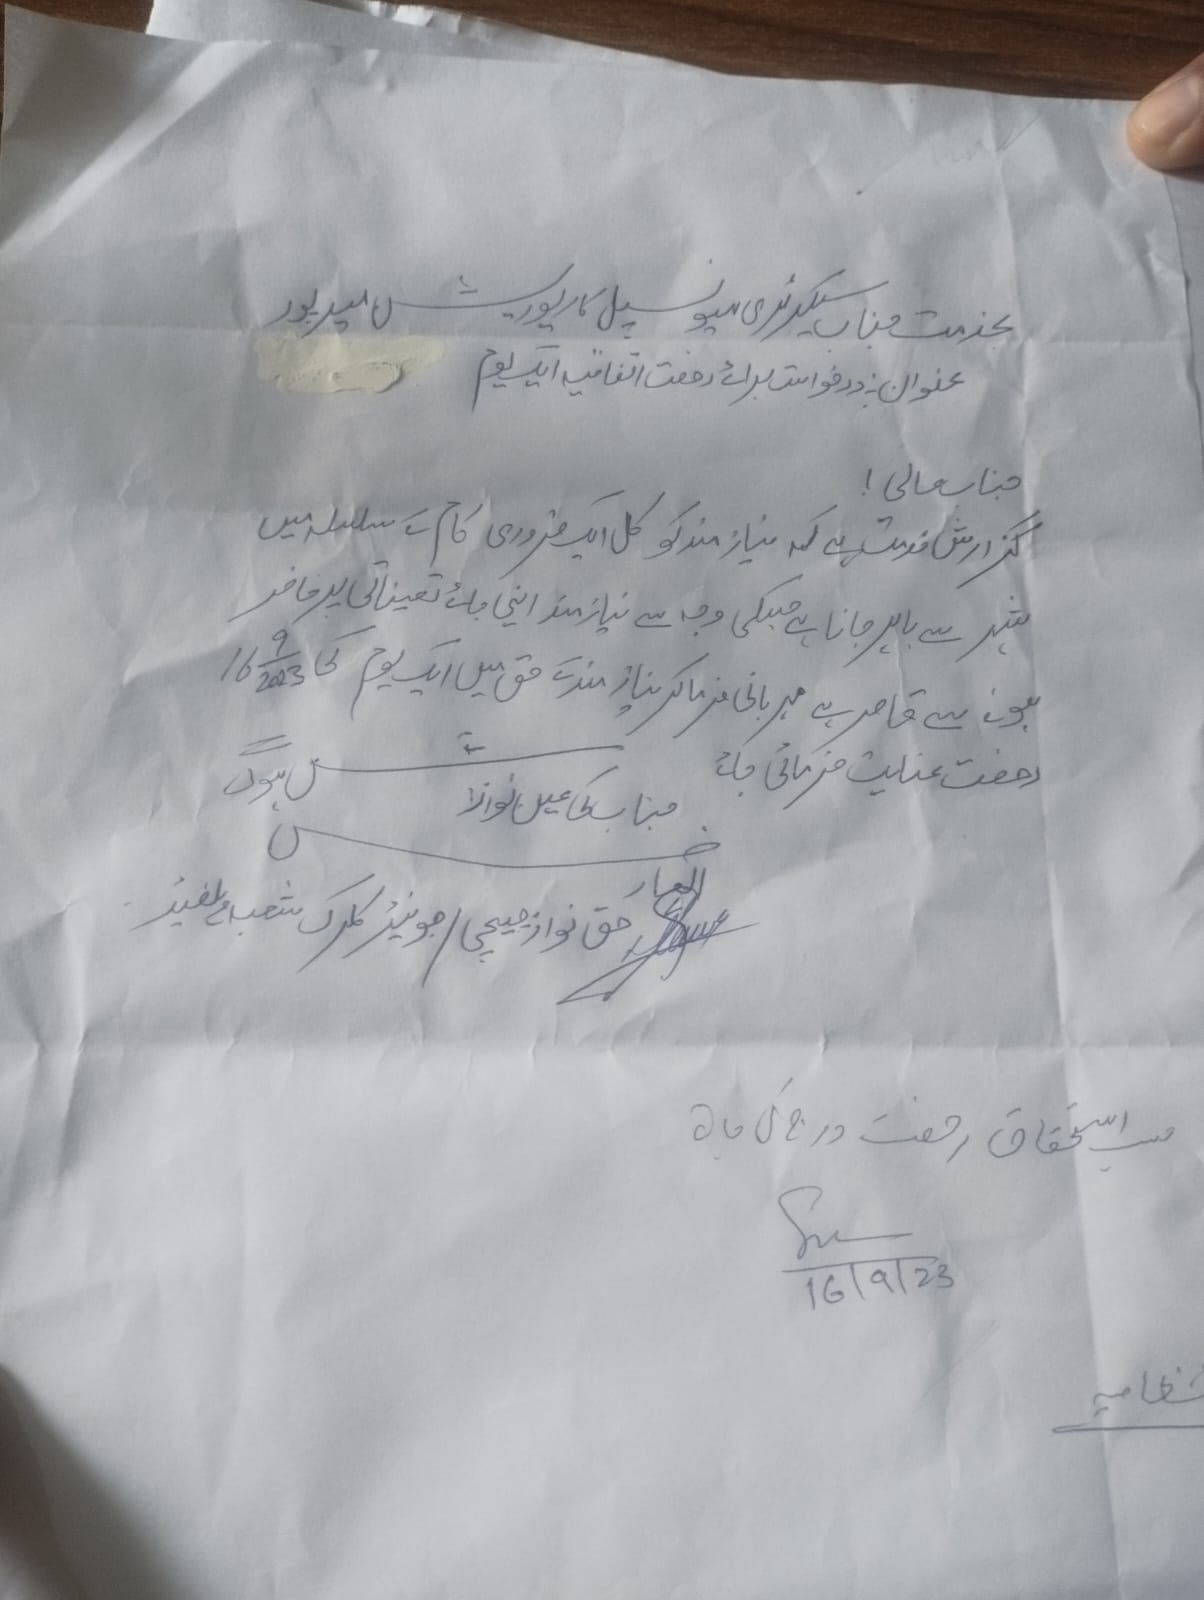 بخدمت جناب سیکرٹری میونسپل کارپوریشن میرپور
عنوان :۔ درخواست برائے رخصت اتفاقیہ ایک یوم
جناب عالی !
گزارش خدمت ہے کہ نیاز مند کو کل ایک ضروری کام کے سلسلہ میں
شہر سے باہر جانا ہے جسکی وجہ سے نیاز مند اپنی جائے تعیناتی پر حاضر
ہونے سے قاصر ہے مہربانی فرما کر نیاز مند کے حق میں ایک یوم کی 16/9/2023
رخصت عنایت فرمائی جائے
جناب کی عین نوازش ہوگی
العارض
حق نواز چیچی / جونیئر کلرک شعبہ
حسب استحقاق رخصت درج کی جائے
16/9/23